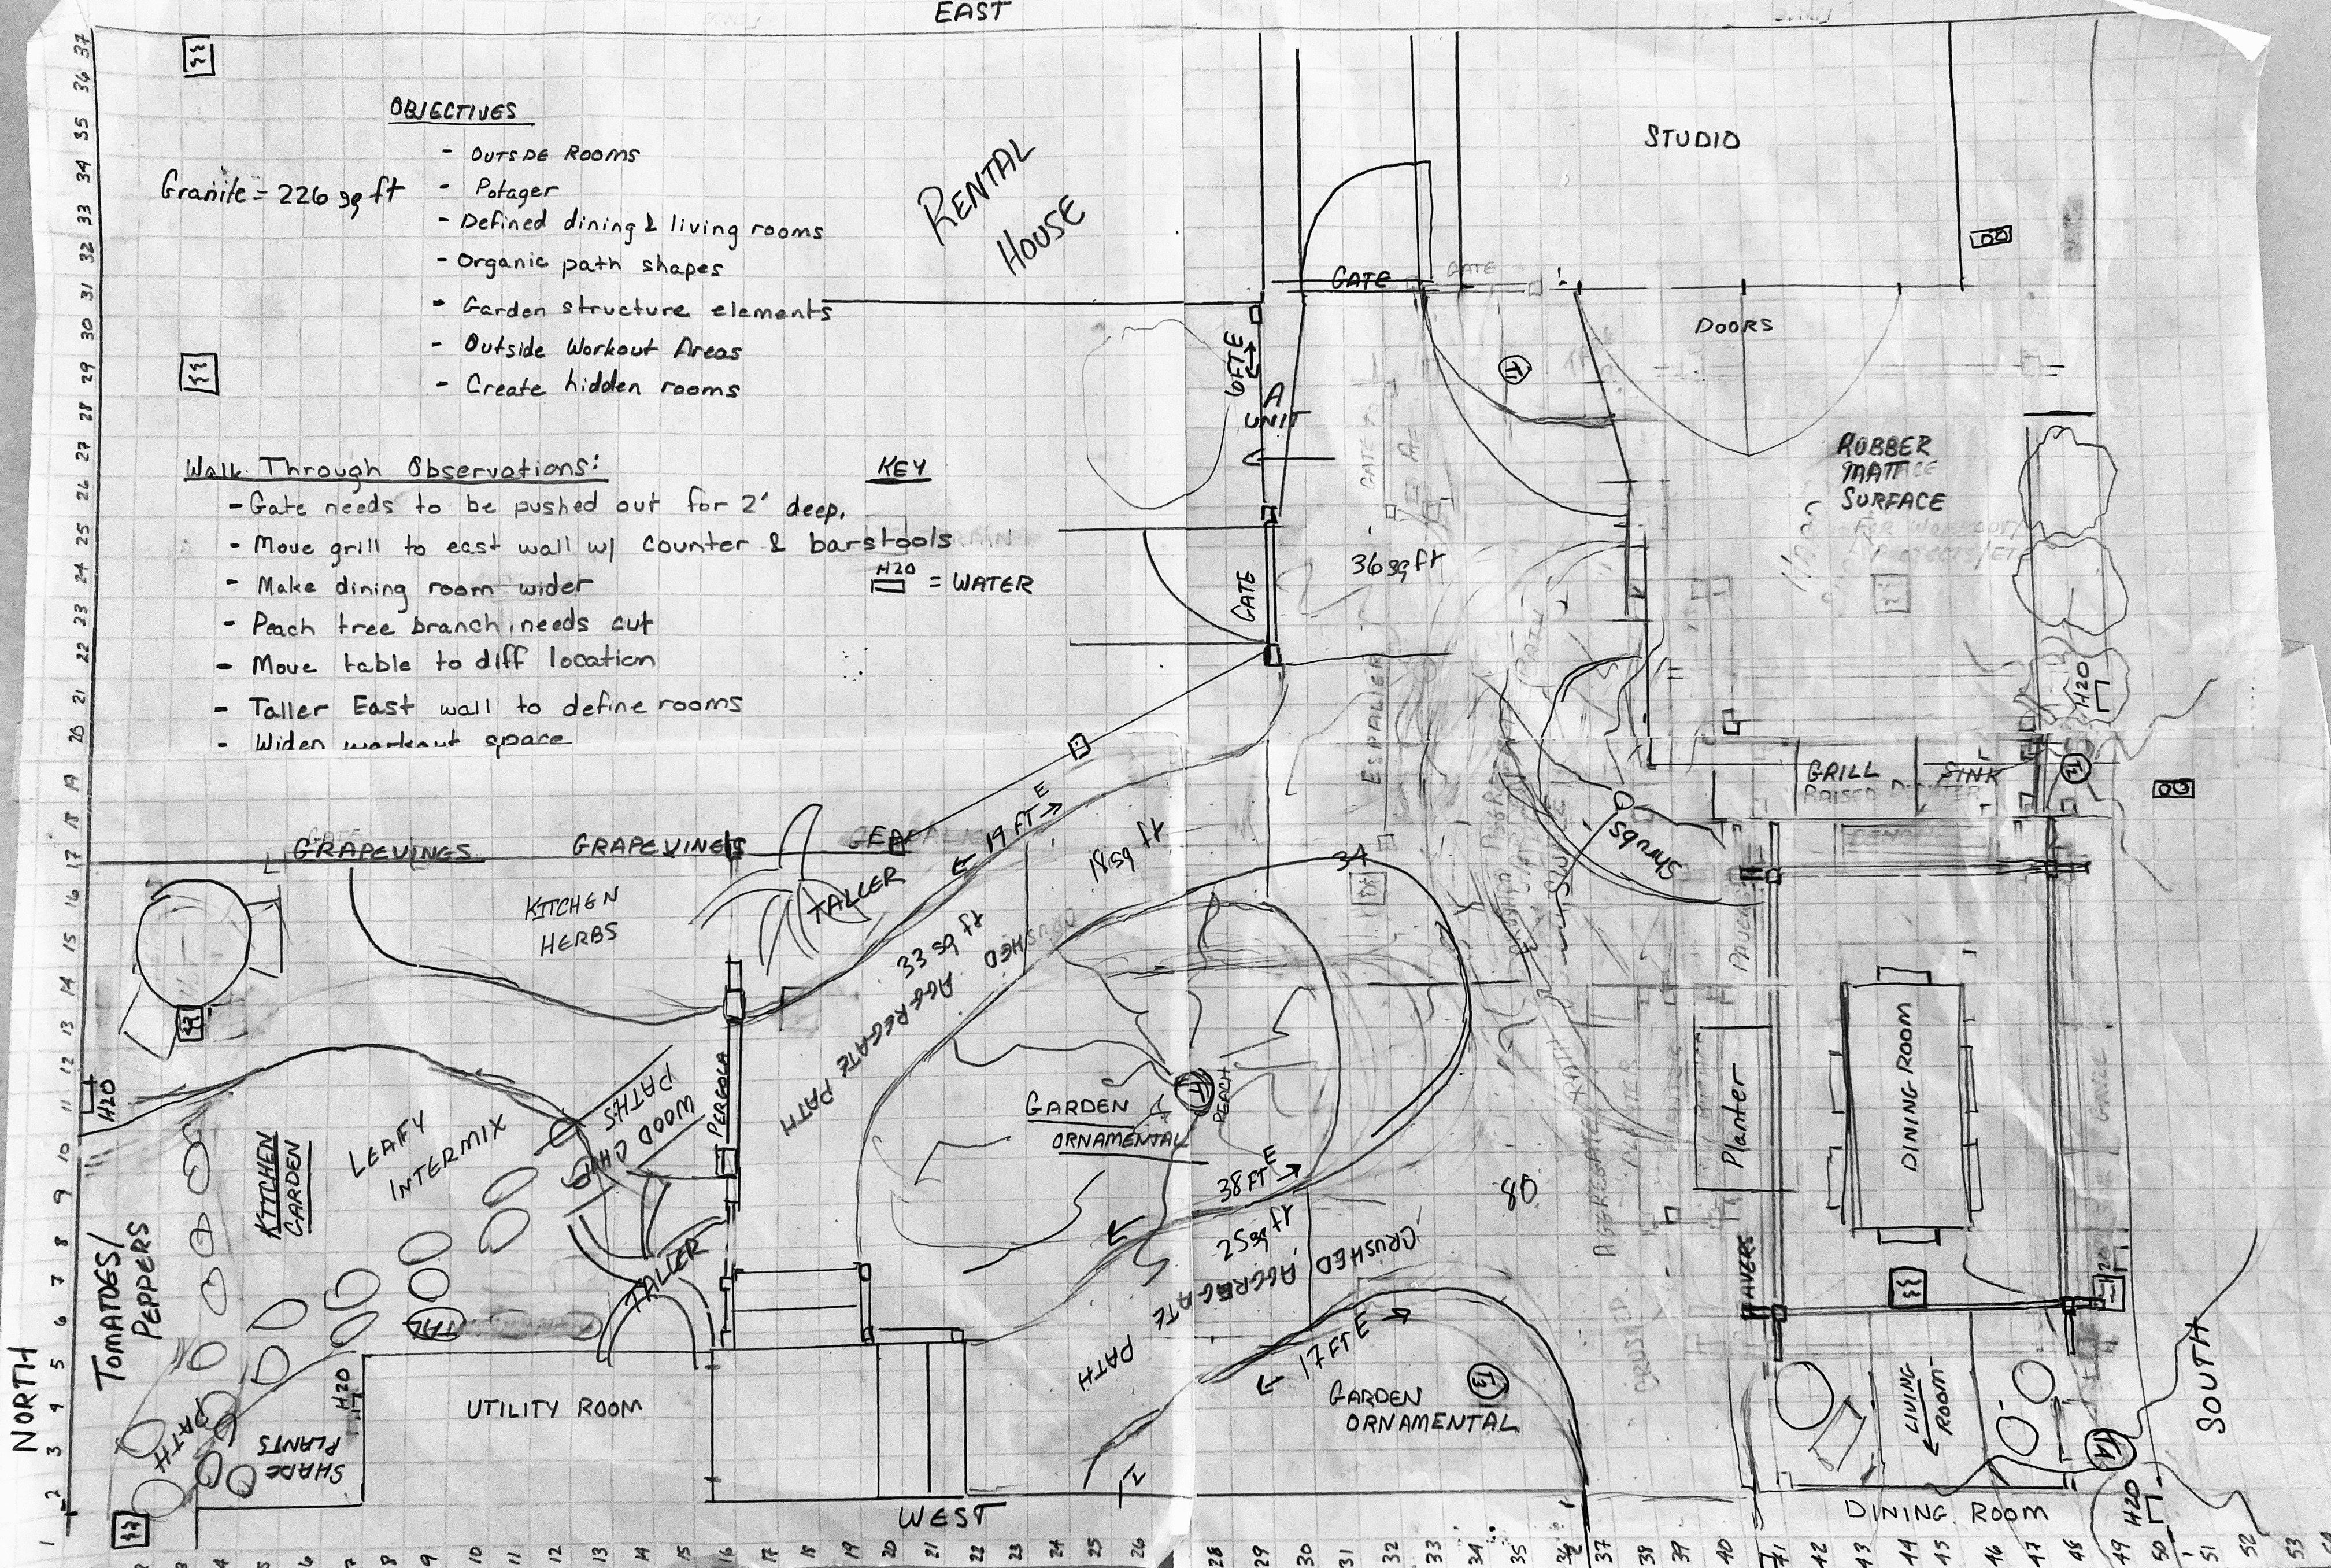 EAST
OBJECTIVES
- OUTSIDE ROOMS
Granite = 226 sq ft
- Potager
- Defined dining & living rooms
- Organic path shapes
- Garden structure elements
- Outside Workout Areas
- Create hidden rooms
Walk Through Observations:
- Gate needs to be pushed out for 2' deep.
- Move grill to east wall w/ counter & barstools
- Make dining room wider
- Peach tree branch needs cut
- Move table to diff location
- Taller East wall to define rooms
- Widen workout space
KEY
H20
= WATER
RENTAL
HOUSE
STUDIO
GATE
GATE
DOORS
6FT E
A
UNIT
T1
RUBBER
SURFACE
FOR WORKOUT/
PROJECTS/ETC
GATE
36 sq ft
ESPALIER
PATH
H20
GRILL
SINK
T2
Shrubs
GRAPEVINES
GRAPEVINES
19 FT E
18 sq ft
34
KITCHEN
HERBS
TALLER
33 sq ft
CRUSHED
AGGREGATE
PATH
PAVERS
H20
PERGOLA
WOOD CHIP
PATHS
GARDEN
ORNAMENTAL
PEACH
Planter
DINING ROOM
LEAFY
INTERMIX
KITCHEN
GARDEN
38 FT E
25 sq ft
CRUSHED
AGGREGATE
PATH
80
AGGREGATE PATH
TALLER
PAVERS
TOMATOES/
PEPPERS
17 FT E
T3
GARDEN
ORNAMENTAL
LIVING
ROOM
T4
H20
UTILITY ROOM
PATH
SHADE
PLANTS
NORTH
SOUTH
WEST
DINING ROOM
H20
37
36
35
34
33
32
31
30
29
28
27
26
25
24
23
22
21
20
19
18
17
16
15
14
13
12
11
10
9
8
7
6
5
4
3
2
1
2 3 4 5 6 7 8 9 10 11 12 13 14 15 16 17 18 19 20 21 22 23 24 25 26 28 29 30 31 32 33 34 35 36 37 38 39 40 41 42 43 44 45 46 47 48 49 50 51 52 53 54